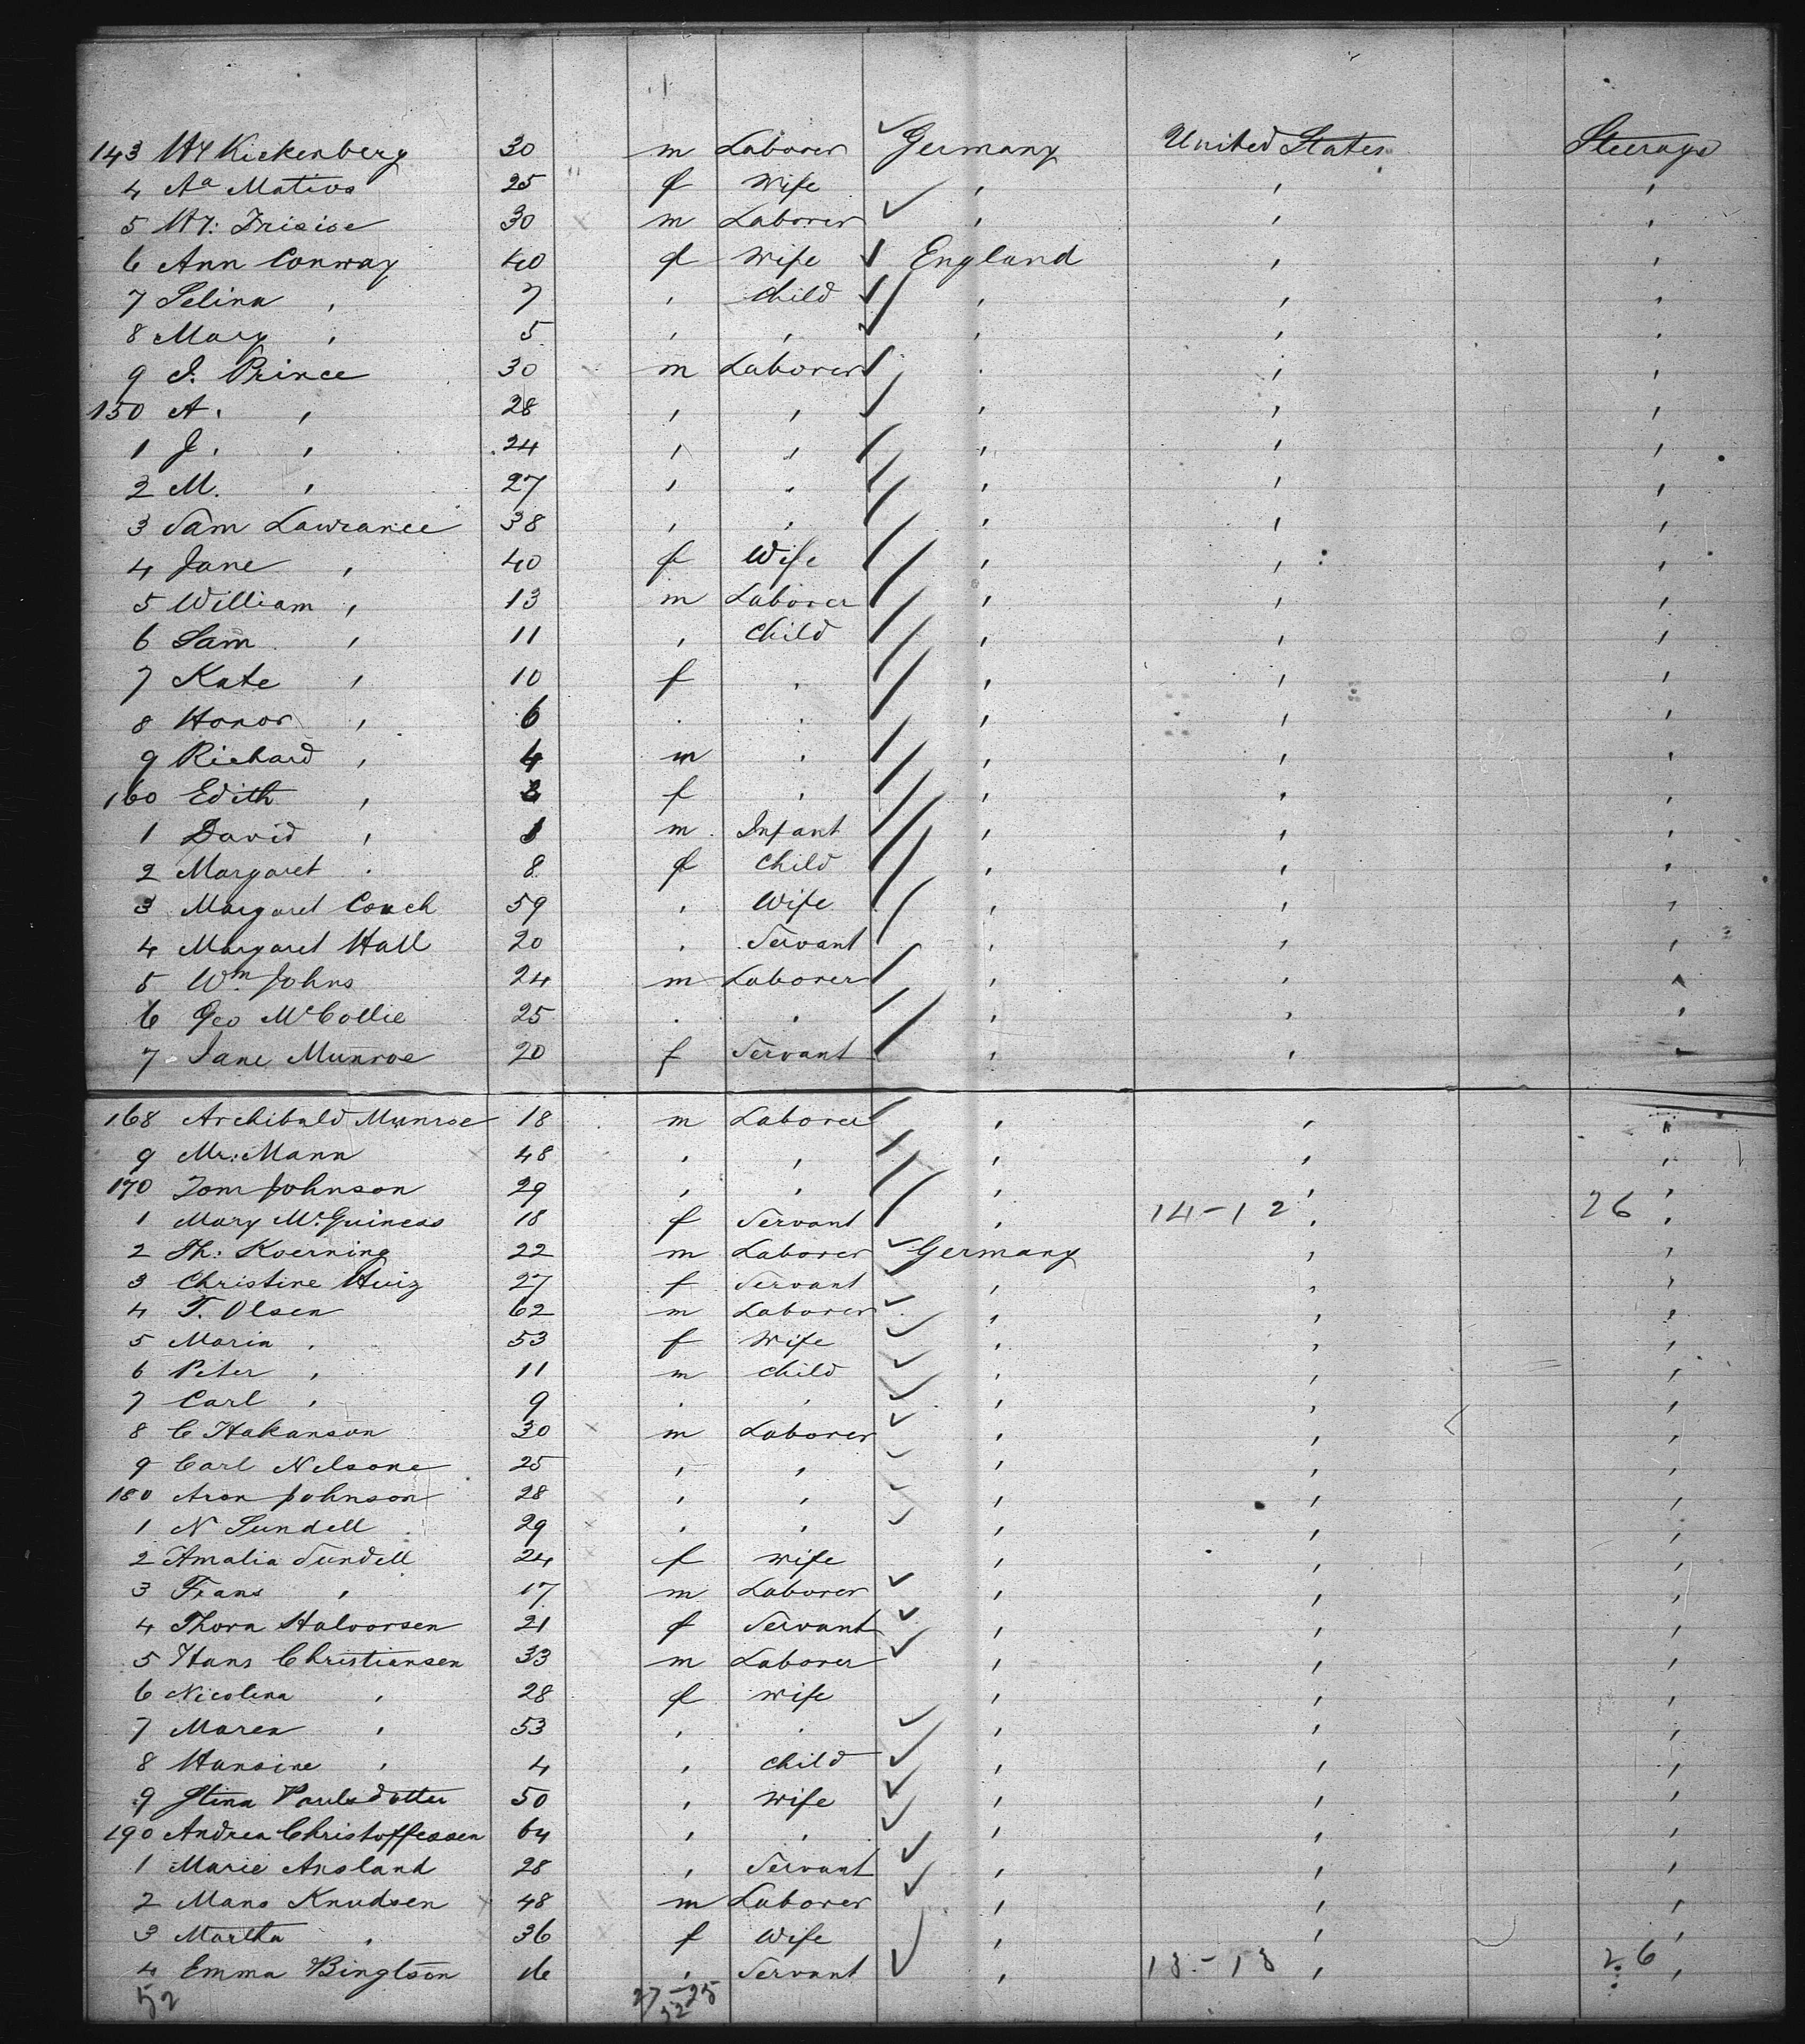 143 Wy Kickenberg 30 m Laborer Germany United States Steerage
4 Aa Mativs 25 f Wife " " "
5 Wy: 30 m Laborer " " "
6 Ann Conway 40 f Wife England " "
7 Selina " 7 " Child " " "
8 Mary " 5 " " " " "
9 J. Prince 30 m Laborer " " "
150 A. " 28 " " " " "
1 J. " 24 " " " " "
2 M. " 27 " " " " "
3 Sam Lawrance 38 " " " " "
4 Jane " 40 f Wife " " "
5 William " 13 m Laborer " " "
6 Sam " 11 " Child " " "
7 Kate " 10 f " " " "
8 Honor " 6 " " " " "
9 Richard " 4 m " " " "
160 Edith " f " " " "
1 David " m Infant " " "
2 Margaret " 8 f Child " " "
3 Margaret Couch 59 " Wife " " "
4 Margaret Hall 20 " Servant " " "
5 Wm Johns 24 m Laborer " " "
6 Geo McCollie 25 " " " " "
7 Jane Munroe 20 f Servant " " "
168 Archibald Munroe 18 m Laborer " " "
9 Mr: Mann 48 " " " " "
170 Tom Johnson 29 " " " " "
1 Mary McGuiness 18 f Servant " 14-12 " 26 "
2 Th: Koerning 22 m Laborer Germany " "
3 Christine Huiz 27 f Servant " " "
4 T. Olsen 62 m Laborer " " "
5 Maria " 53 f Wife " " "
6 Peter " 11 m Child " " "
7 Carl " 9 " " " " "
8 C Hakanson 30 m Laborer " " "
9 Carl Nelsone 25 " " " " "
180 Aron Johnson 28 " " " " "
1 N Sundell 29 " " " " "
2 Amalia Sundell 24 f wife " " "
3 Frans " 17 m Laborer " " "
4 Thora Halvorsen 21 f Servant " " "
5 Hans Christiansen 33 m Laborer " " "
6 Nicolena " 28 f wife " " "
7 Maren " 53 " " " " "
8 Hansine " 4 " child " " "
9 Stina Paulsdotter 50 " wife " " "
190 Andrea Christoffessen 64 " " " " "
1 Marie Ansland 28 " Servant " " "
2 Mans Knudsen 48 m Laborer " " "
3 Martha " 36 f Wife " " "
4 Emma Bingtson 16 " Servant " 13-13 " 26 "
52 27-25
52